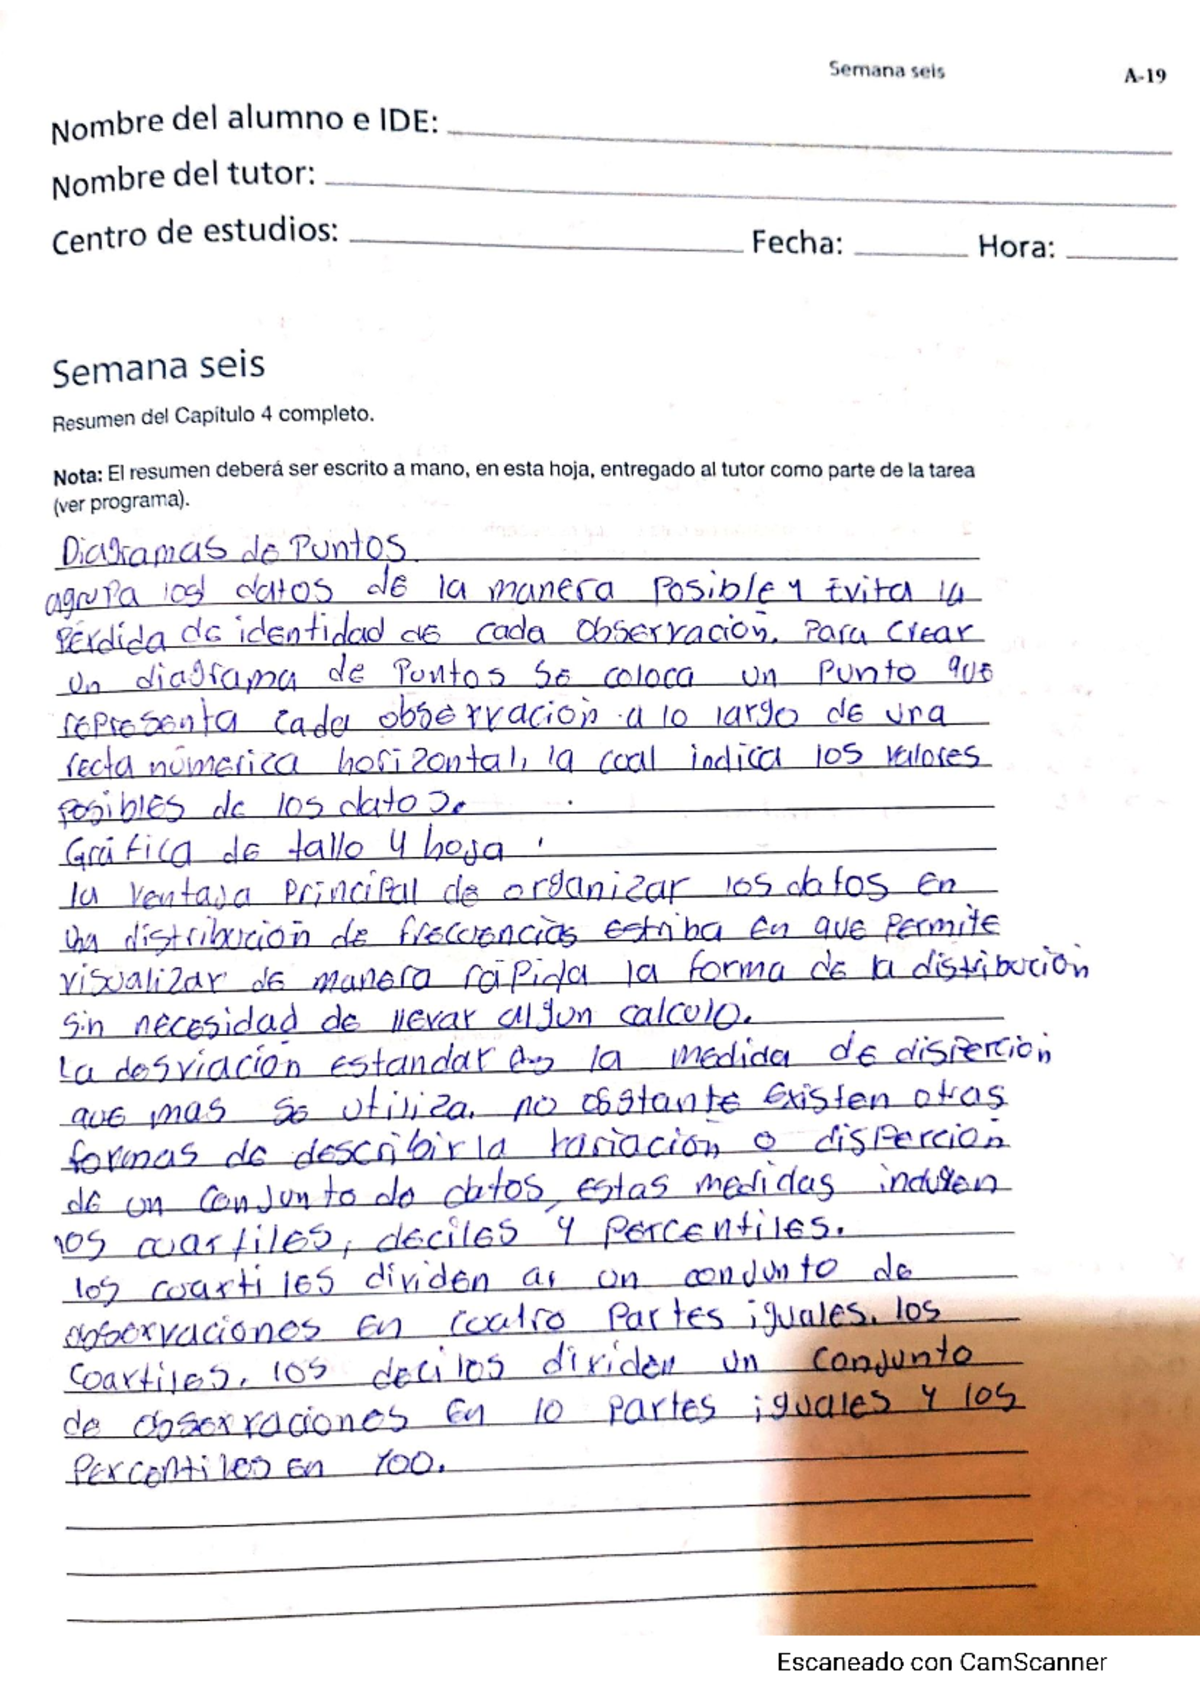 Semana seis A-19
Nombre del alumno e IDE:
Nombre del tutor:
Centro de estudios: Fecha: Hora:
Semana seis
Resumen del Capítulo 4 completo.
Nota: El resumen deberá ser escrito a mano, en esta hoja, entregado al tutor como parte de la tarea
(ver programa).
Diagramas de Puntos.
agrupa los datos de la manera Posible y Evita la
Pérdida de identidad de cada Observación. Para Crear
un diagrama de Puntos Se coloca un Punto que
representa cada observación a lo largo de una
recta númerica horizontal, la coal indica los valores
Posibles de los datos.
Gráfica de tallo y hoja
la ventaja Principal de organizar los datos en
una distribución de frecuencias estriba en que Permite
visualizar de manera rápida la forma de la distribución
sin necesidad de llevar algun calculo.
La desviación estandar es la medida de dispercion
que mas se utiliza. no obstante Existen otras
formas de describir la variación o dispercion
de un conjunto de datos, estas medidas incluyen
los cuartiles, deciles y Percentiles.
los cuartiles dividen a un conjunto de
observaciones en cuatro Partes iguales. los
Coartiles. los deciles dividen un conjunto
de observaciones en 10 Partes iguales y los
Percentiles en 100.
Escaneado con CamScanner